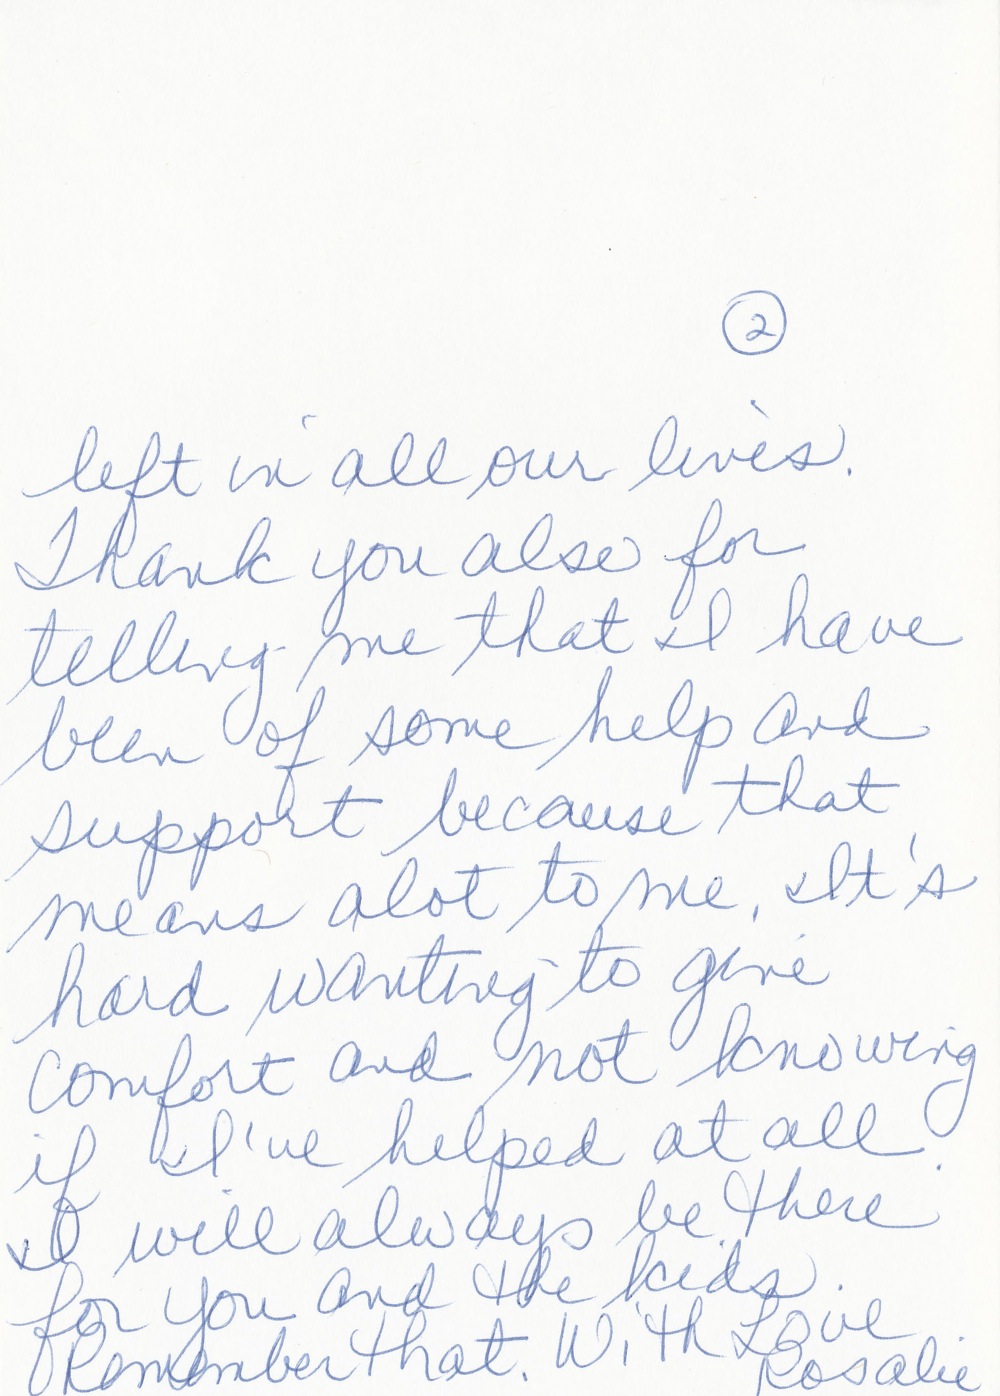 2
left in all our lives.
Thank you also for
telling me that I have
been of some help and
support because that
means alot to me. It's
hard wanting to give
comfort and not knowing
if I've helped at all.
I will always be there
for you and the kids.
Remember that. With Love
Rosalie